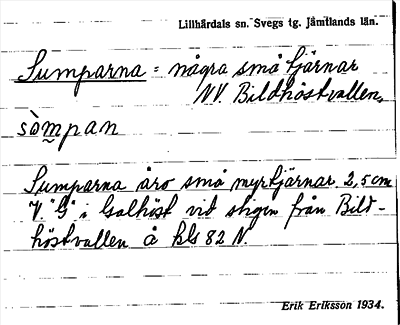 Lillhärdals sn. Svegs tg. Jämtlands län.
Sumparna = några små tjärnar
NV. Bildhöstvallen.
sòmpan
Sumparna äro små myrtjärnar 2,5 cm
V. "G" i Galhöst vid stigen från Bild-
höstvallen å kbl 82 N.
Erik Eriksson 1934.